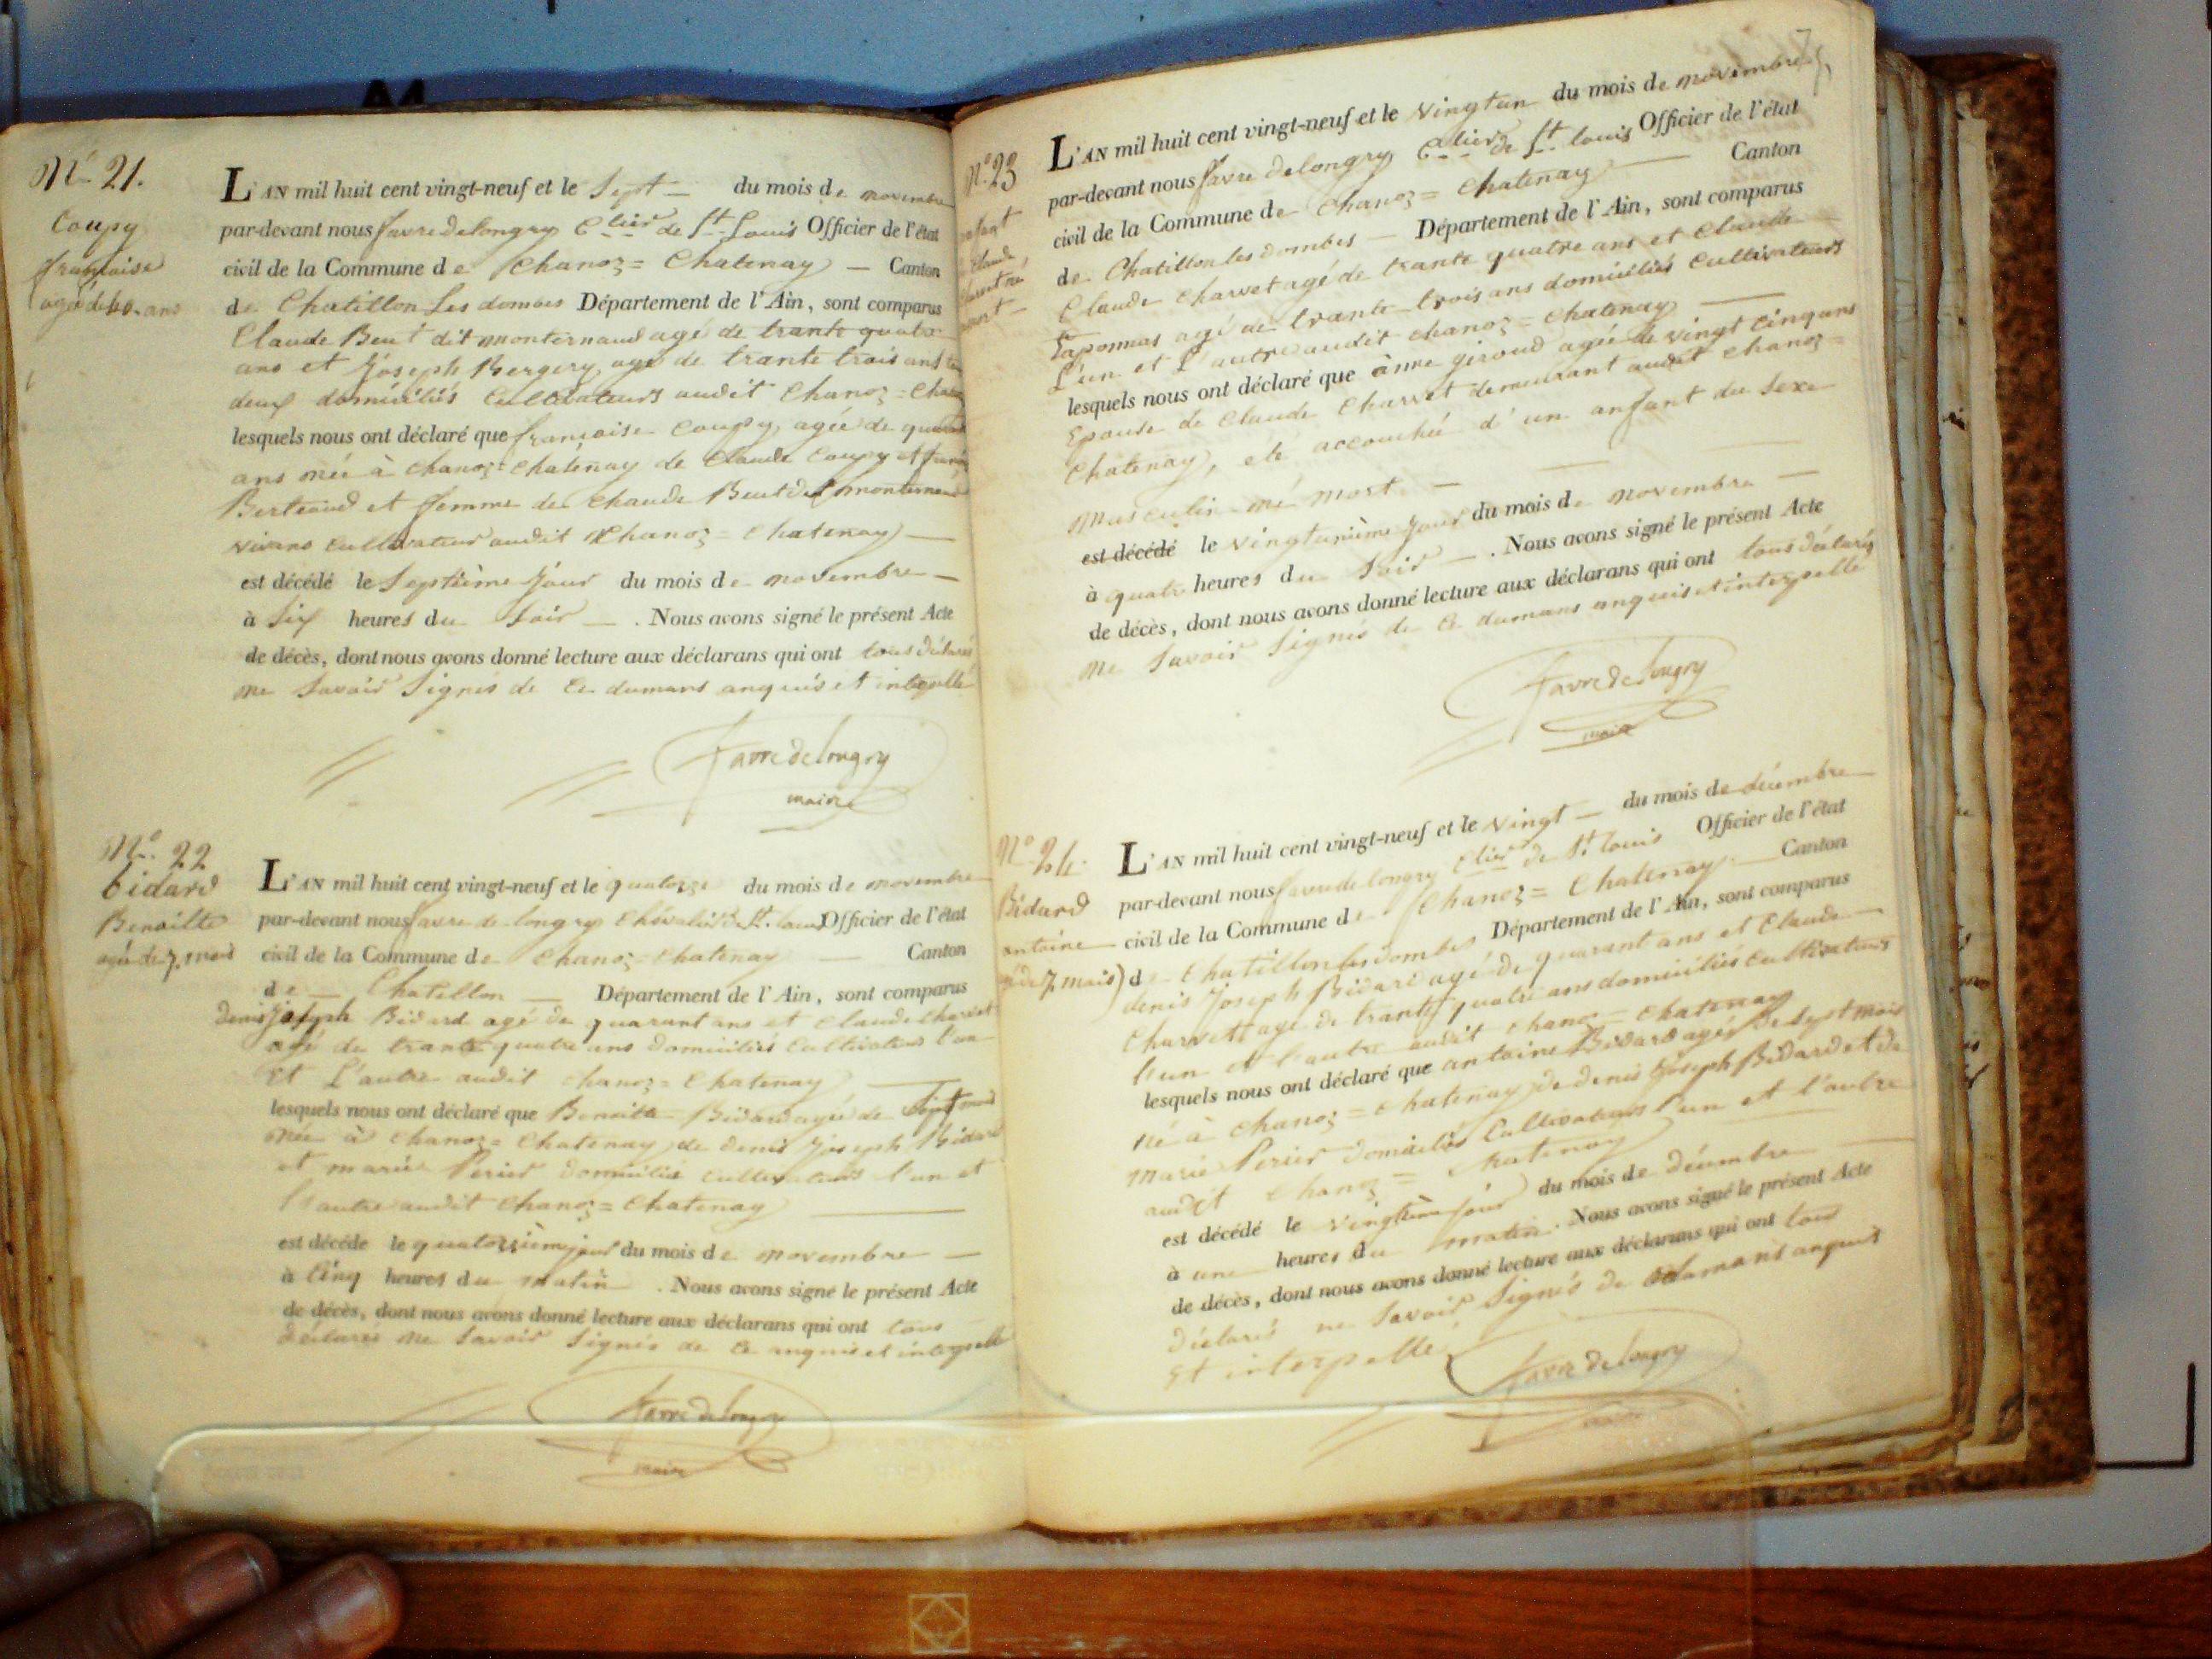 N° 21.
Coupy
françoise
agée de 40. ans
L'AN mil huit cent vingt-neuf et le Sept — du mois de novembre
par-devant nous favre Delongry Clier de St Louis Officier de l'état
civil de la Commune de Chanoz = Chatenay — Canton
de Chatillon Les dombes Département de l'Ain, sont comparus
Claude Beut dit monternaud agé de trante quatre
ans et Joseph Bergery agé de trante trois ans
deux domiciliés Cultivateurs audit Chanoz =
lesquels nous ont déclaré que françoise Coupy agée de
ans née à Chanoz = Chatenay de Claude Coupy et
Bertraud et femme de Claude Beut dit monternaud
vivans Cultivateur audit Chanoz = Chatenay —
est décédé le Septième Jour du mois de novembre —
à Six heures du Soir — . Nous avons signé le présent Acte
de décès, dont nous avons donné lecture aux déclarans qui ont tous déclarés
ne Savoir Signés de ce dumans anquis et interpellé
favre de longry
maire
N° 22
bidard
Benoitte
agée de 7. mois
L'AN mil huit cent vingt-neuf et le quatorze du mois de novembre
par-devant nous favre de longry Chevalier de St. Louis Officier de l'état
civil de la Commune de Chanoz = Chatenay — Canton
de — Chatillon — Département de l'Ain, sont comparus
denis Joseph Bidard agé de quarant ans et Claude Charvet
agé de trante quatre ans domiciliés Cultivateurs l'un
et L'autre audit Chanoz = Chatenay —
lesquels nous ont déclaré que Benoitte Bidard agée de Sept mois
née à Chanoz = Chatenay de denis Joseph Bidard
et marie Perier domiciliés cultivateurs l'un et
l'autre audit Chanoz = Chatenay —
est décédé le quatorzième jour du mois de novembre —
à Cinq heures du matin . Nous avons signé le présent Acte
de décès, dont nous avons donné lecture aux déclarans qui ont tous
déclarés ne Savoir Signés de ce anquis et interpellé
favre de longry
maire
N° 23
L'AN mil huit cent vingt-neuf et le vingtun du mois de novembre
par-devant nous favre Delongry Clier de St Louis Officier de l'état
civil de la Commune de Chanoz = Chatenay — Canton
de Chatillon les dombes — Département de l'Ain, sont comparus
Claude Charvet agé de trante quatre ans et Claude
Taponnas agé de trante trois ans domiciliés Cultivateurs
L'un et L'autre audit Chanoz = Chatenay —
lesquels nous ont déclaré que anne giroud agée de vingt cinq ans
Epouse de Claude Charvet demeurant audit Chanoz =
Chatenay, eté accouchée d'un anfant du Sexe
masculin né mort —
est décédé le vingtunième Jour du mois de novembre —
à quatre heures du Soir — . Nous avons signé le présent Acte
de décès, dont nous avons donné lecture aux déclarans qui ont tous déclarés
ne Savoir Signés de ce dumans anquis et interpellé
favre de longry
maire
N° 24.
Bidard
antoine
agé de 7. mois
L'AN mil huit cent vingt-neuf et le vingt — du mois de décembre
par-devant nous favre de longry Clier de St Louis Officier de l'état
civil de la Commune de Chanoz = Chatenay — Canton
de Chatillon les dombes Département de l'Ain, sont comparus
denis Joseph Bidard agé de quarant ans et Claude —
Charvet agé de trante quatre ans domiciliés Cultivateurs
l'un et l'autre audit Chanoz = Chatenay
lesquels nous ont déclaré que antoine Bidard agé de Sept mois
né à Chanoz = Chatenay de denis Joseph Bidard et de
marie Perier domiciliés Cultivateurs l'un et l'autre
audit Chanoz = Chatenay —
est décédé le vingtième Jour du mois de décembre —
à une heures du matin . Nous avons signé le présent Acte
de décès, dont nous avons donné lecture aux déclarans qui ont tous
déclarés ne Savoir Signés de ce dumans anquis
et interpellé
favre de longry